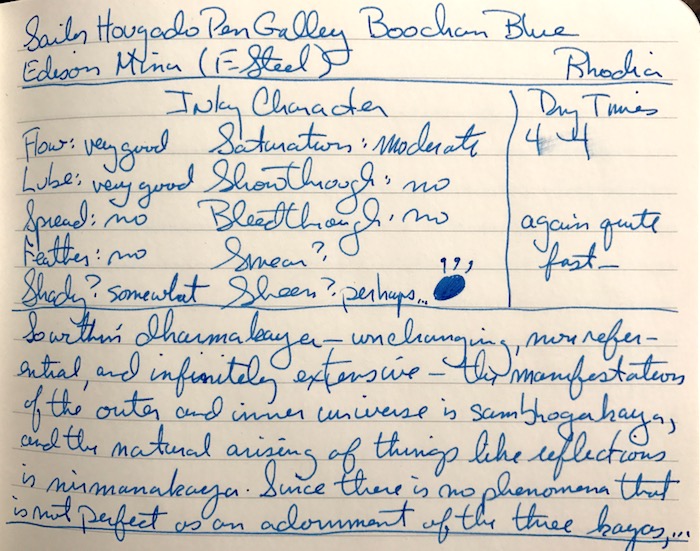 Sailor Hougado Pen Galley Boochan Blue
Edison Mina (F-Steel) Rhodia
Inky Character Dry Times
Flow: very good Saturation: Moderate 4 4
Lube: very good Showthrough: no
Spread: no Bleedthrough: no again quite
Feather: no Smear? fast—
Shady? somewhat Sheen? perhaps... ???
So within dharmakaya — unchanging, non refer-
ential, and infinitely extensive — the manifestation
of the outer and inner universe is sambhogakaya,
and the natural arising of things like reflections
is nirmanakaya. Since there is no phenomena that
is not perfect as an adornment of the three kayas,...